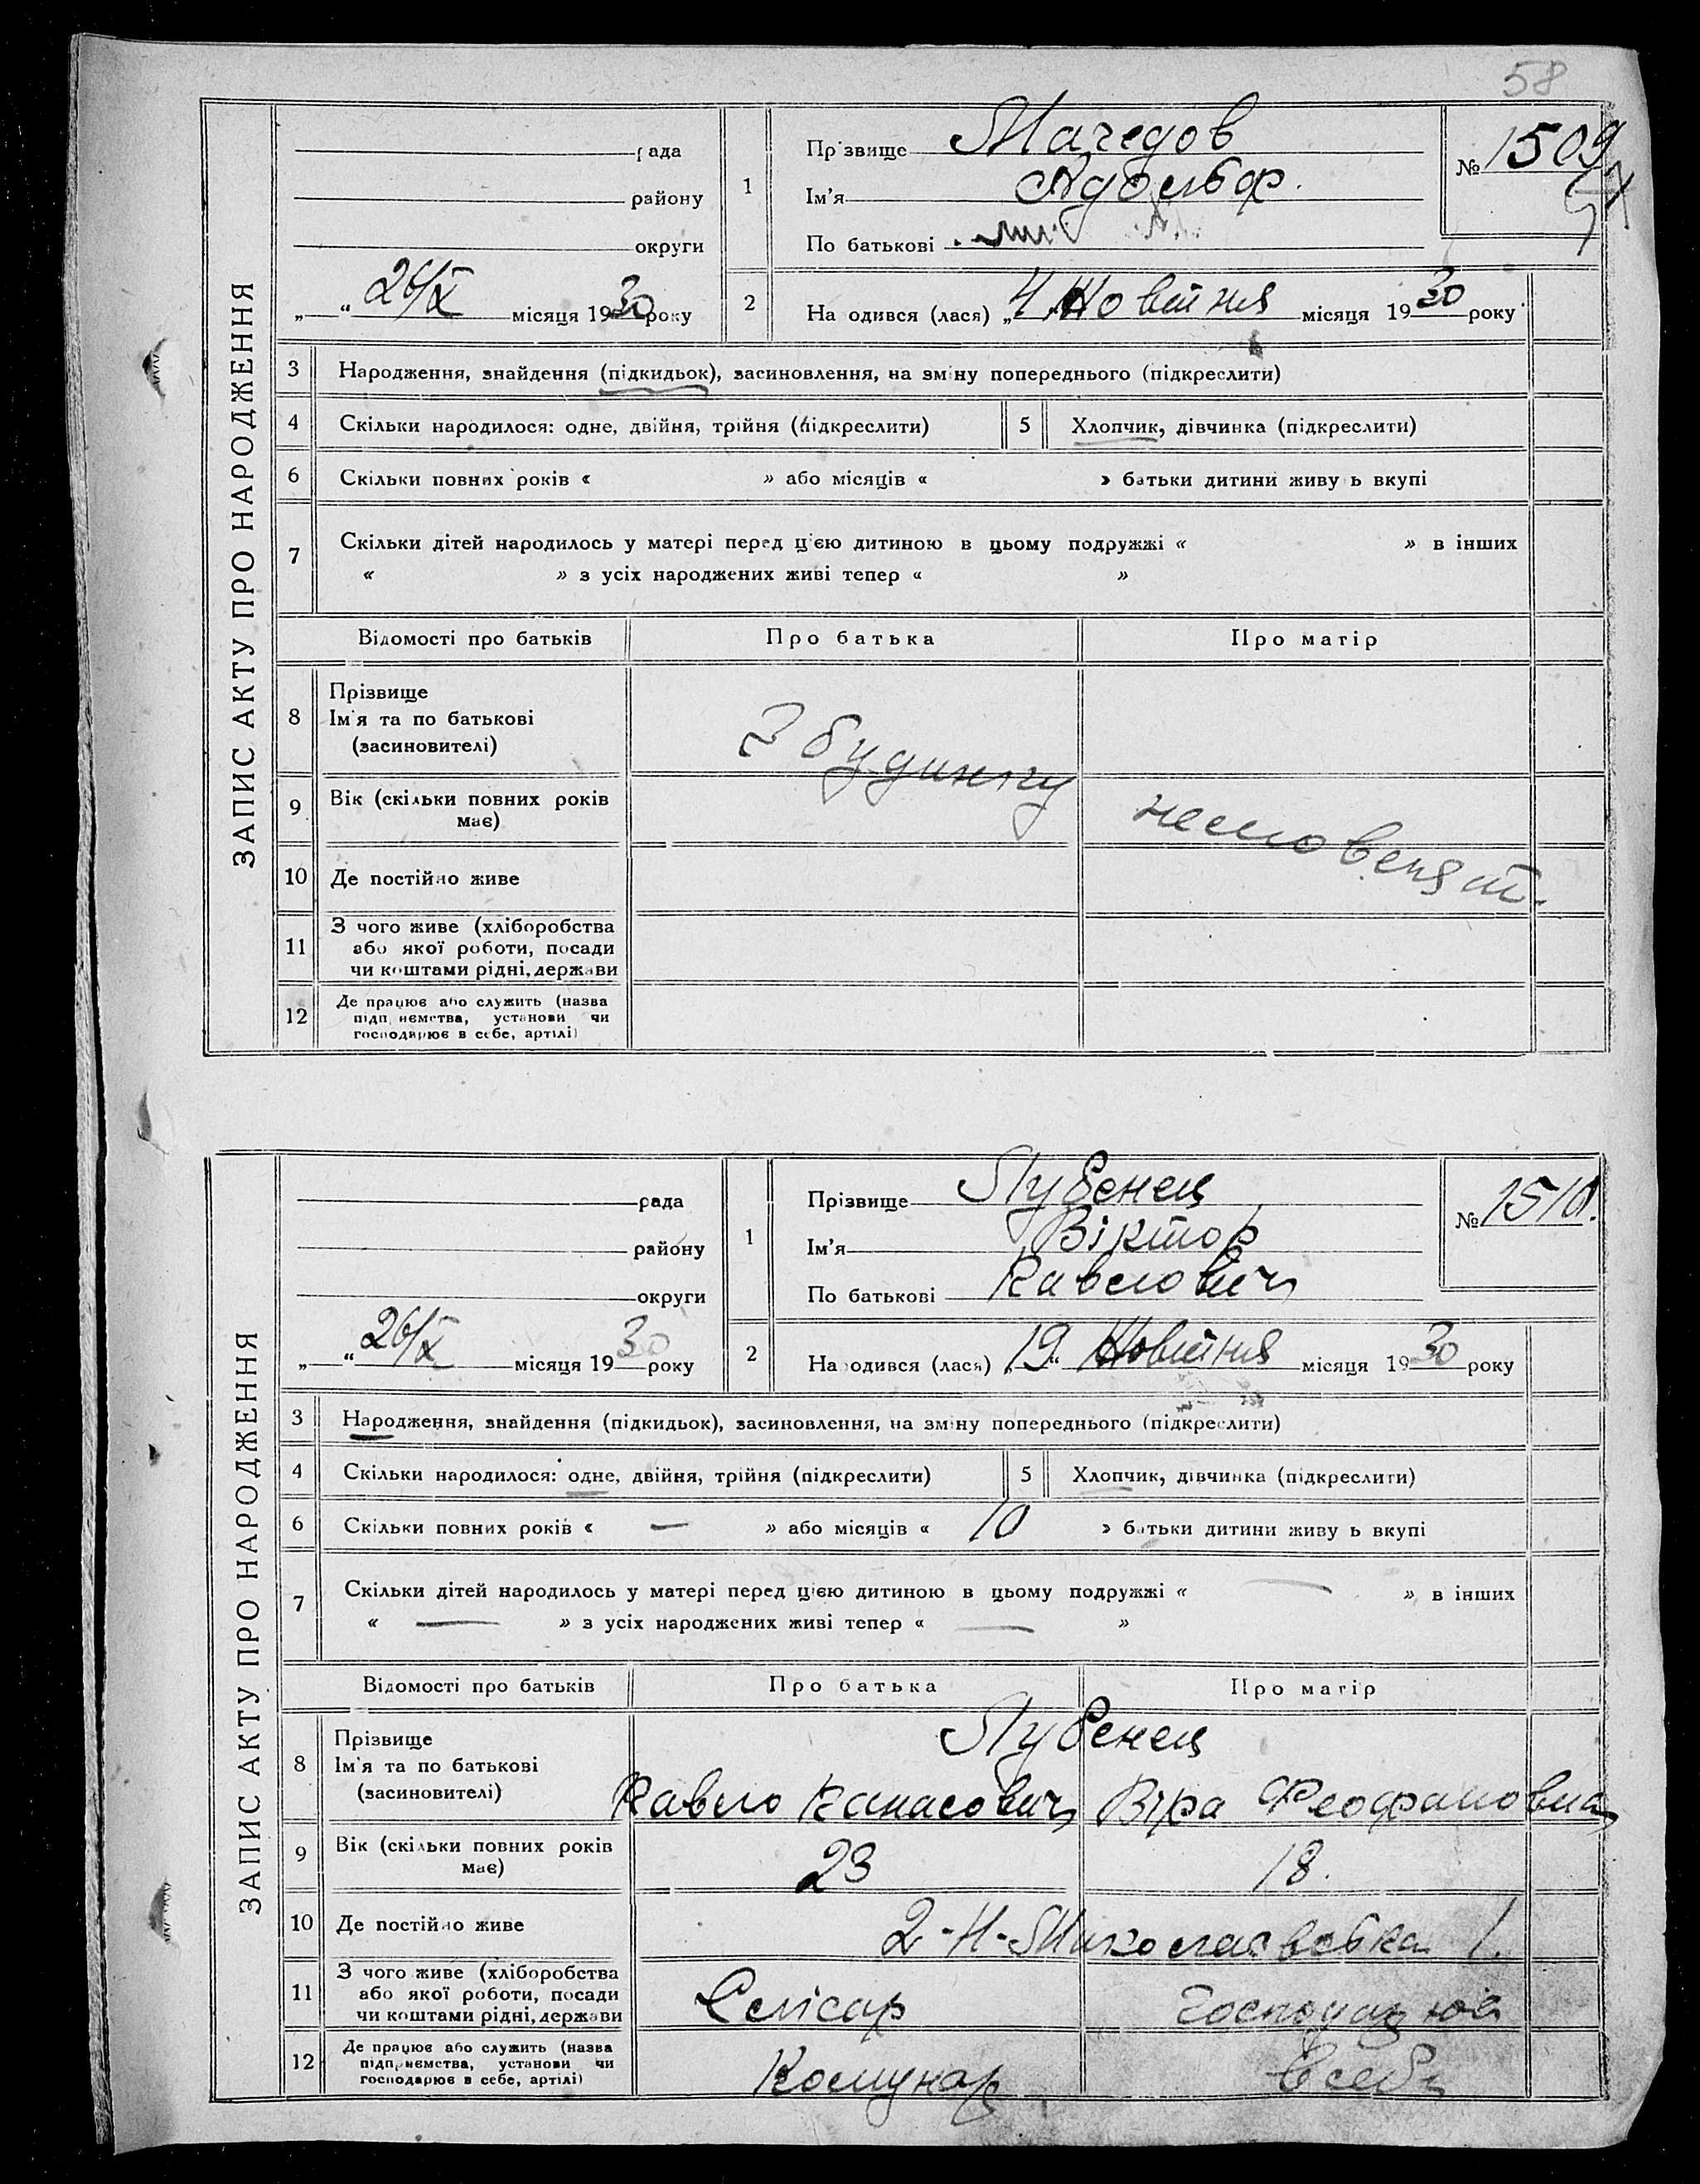 58
ЗАПИС АКТУ ПРО НАРОДЖЕННЯ
рада
району
округи
„ “ 26/X місяця 1930 року
1
Прізвище Мачедов
Ім'я Адольф.
По батькові
№ 1509
2
Народився (лася) „ 4 Жовтня місяця 1930 року
3 Народження, знайдення (підкидьок), засиновлення, на зміну попереднього (підкреслити)
4 Скільки народилося: одне, двійня, трійня (підкреслити)
5 Хлопчик, дівчинка (підкреслити)
6 Скільки повних років « » або місяців « » батьки дитини живуть вкупі
7 Скільки дітей народилось у матері перед цією дитиною в цьому подружжі « » в інших
« » з усіх народжених живі тепер « »
Відомості про батьків Про батька Про матір
8 Прізвище
Ім'я та по батькові
(засиновителі)
З будинку
9 Вік (скільки повних років
має)
немовенят.
10 Де постійно живе
11 З чого живе (хліборобства
або якої роботи, посади
чи коштами рідні, держави
12 Де працює або служить (назва
підприємства, установи чи
господарює в себе, артілі)
ЗАПИС АКТУ ПРО НАРОДЖЕННЯ
рада
району
округи
„ “ 26/X місяця 1930 року
1
Прізвище Лубенец
Ім'я Віктор
По батькові Павлович
№ 1510.
2
Народився (лася) „ 19 “ Жовтня місяця 1930 року
3 Народження, знайдення (підкидьок), засиновлення, на зміну попереднього (підкреслити)
4 Скільки народилося: одне, двійня, трійня (підкреслити)
5 Хлопчик, дівчинка (підкреслити)
6 Скільки повних років « — » або місяців « 10 » батьки дитини живуть вкупі
7 Скільки дітей народилось у матері перед цією дитиною в цьому подружжі « — » в інших
« — » з усіх народжених живі тепер « — »
Відомості про батьків Про батька Про матір
8 Прізвище
Ім'я та по батькові
(засиновителі)
Лубенец
Павло Панасович Віра Феофановна
9 Вік (скільки повних років
має)
23 18.
10 Де постійно живе 2-Н-Миколаєвська 1.
11 З чого живе (хліборобства
або якої роботи, посади
чи коштами рідні, держави
Слюсар Господарює
12 Де працює або служить (назва
підприємства, установи чи
господарює в себе, артілі)
Комунар в себе